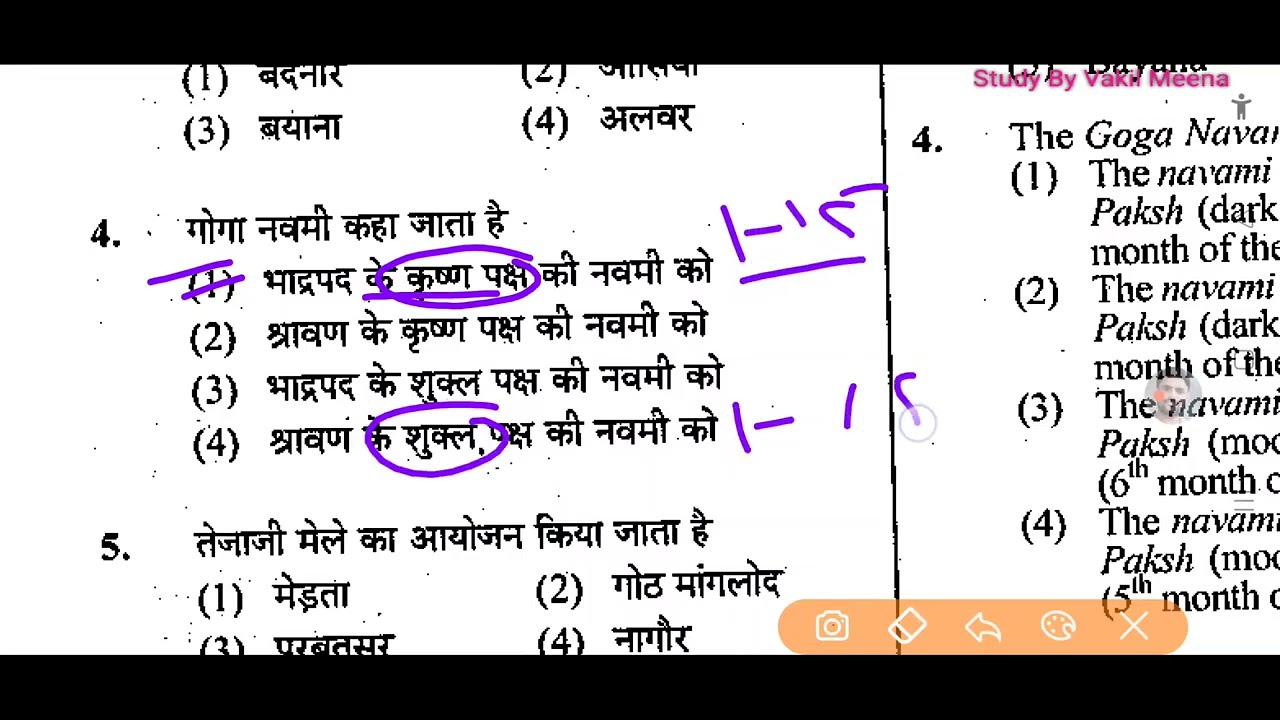 (1) बदनार (2)
Study By Vakil Meena
(3) बयाना (4) अलवर
4. गोगा नवमी कहा जाता है
1-15
(1) भाद्रपद के कृष्ण पक्ष की नवमी को
(2) श्रावण के कृष्ण पक्ष की नवमी को
(3) भाद्रपद के शुक्ल पक्ष की नवमी को
(4) श्रावण के शुक्ल पक्ष की नवमी को
1-15
5. तेजाजी मेले का आयोजन किया जाता है
(1) मेड़ता (2) गोठ मांगलोद
(3) परबतसर (4) नागौर
4. The Goga Nava
(1) The navami
Paksh (dark
month of the
(2) The navami
Paksh (dark
month of the
(3) The navami
Paksh (moo
(6th month o
(4) The navami
Paksh (moo
(5th month o